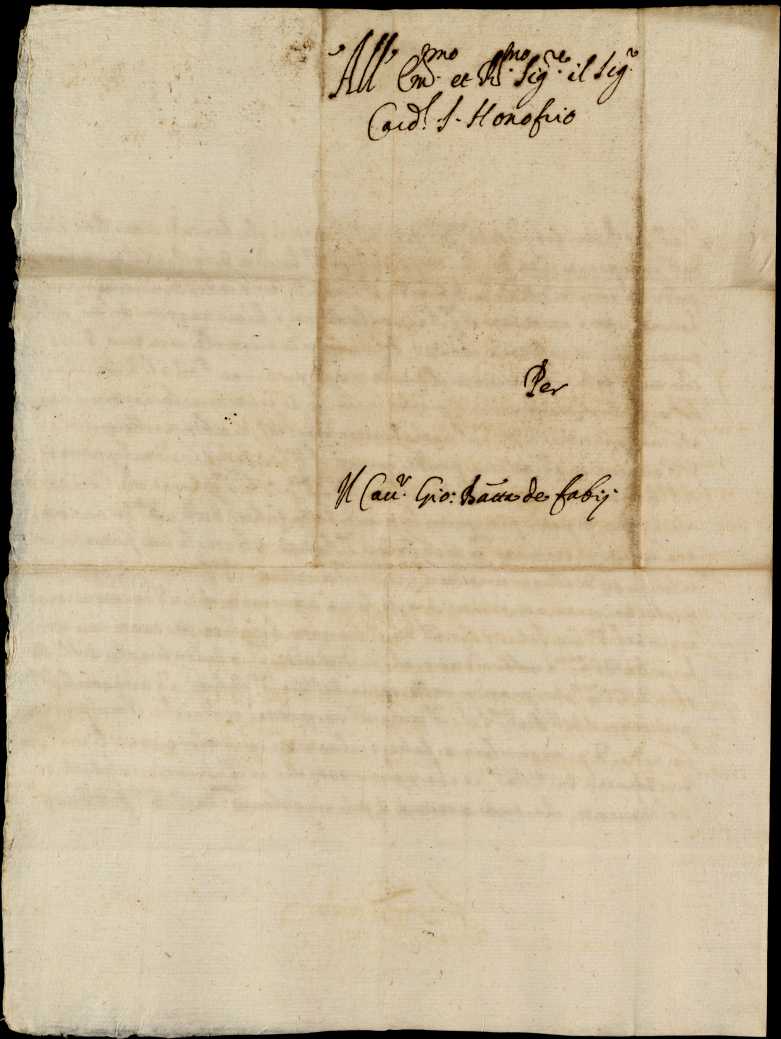 All' Em.mo et R.mo Sig.re il Sig.r
Card.l S. Honofrio
Per
Il Cau.r Gio: Batta de fabij